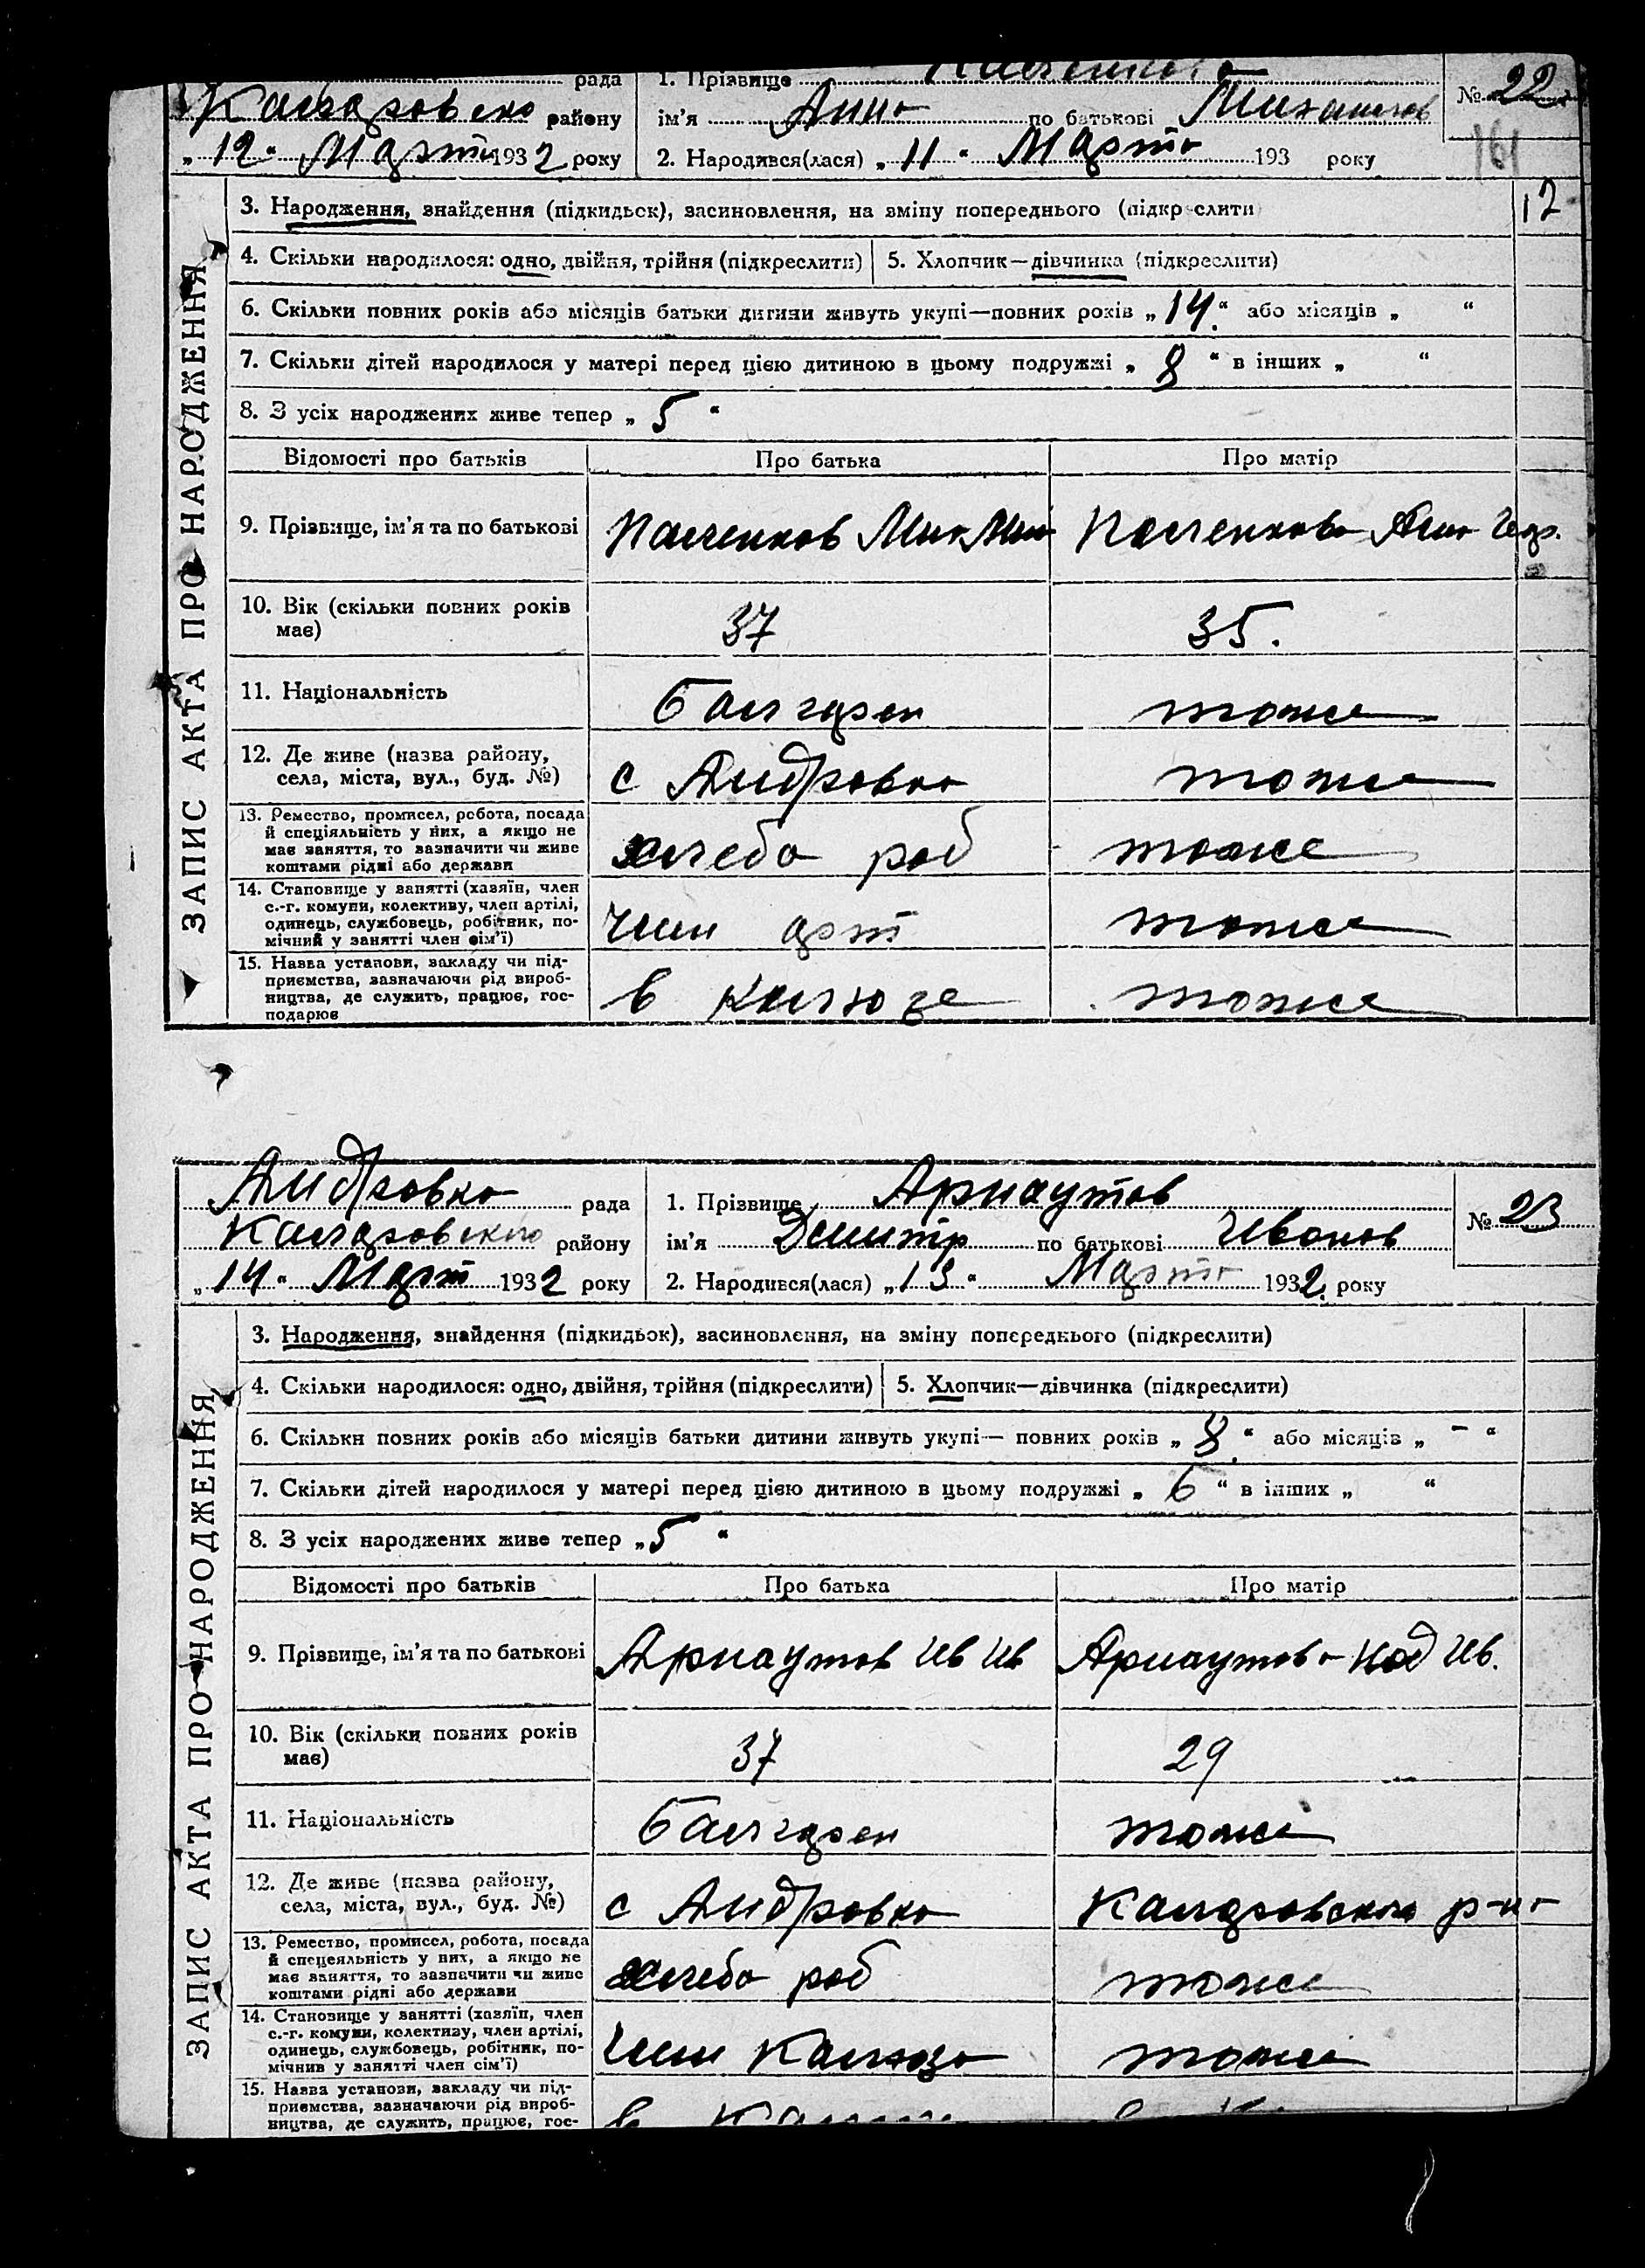 рада
1. Прізвище
№ 22
району
ім'я Анна по батькові
161
„ 12 “ Марта 1932 року
2. Народився(лася) „ 11 “ Марта 193 року
12
ЗАПИС АКТА ПРО НАРОДЖЕННЯ
3. Народження, знайдення (підкидьок), засиновлення, на зміну попереднього (підкреслити
4. Скільки народилося: одно, двійня, трійня (підкреслити)
5. Хлопчик—дівчинка (підкреслити)
6. Скільки повних років або місяців батьки дитини живуть укупі—повних років „ 14 “ або місяців „ “
7. Скільки дітей народилося у матері перед цією дитиною в цьому подружжі „ 8 “ в інших „ “
8. З усіх народжених живе тепер „ 5 “
Відомості про батьків
Про батька
Про матір
9. Прізвище, ім'я та по батькові
Палченков Мих Мих
Палченкова Анна
10. Вік (скільки повних років
має)
37
35.
11. Національність
Балгарен
тоже
12. Де живе (назва району,
села, міста, вул., буд. №)
с Андровка
тоже
13. Ремество, промисел, робота, посада
й спеціяльність у них, а якщо не
має заняття, то зазначити чи живе
коштами рідні або держави
хлебо роб
тоже
14. Становище у занятті (хазяїн, член
с.-г. комуни, колективу, член артілі,
одинець, службовець, робітник, по-
мічний у занятті член сім'ї)
член арт
тоже
15. Назва установи, закладу чи під-
приємства, зазначаючи рід вироб-
ництва, де служить, працює, гос-
подарює
в калхозе
тоже
Андровка рада
1. Прізвище Арнаутов
№ 23
Каларовского району
ім'я Дмитр по батькові Иванов
„ 14 “ Март 1932 року
2. Народився(лася) „ 13 “ Марта 1932. року
ЗАПИС АКТА ПРО НАРОДЖЕННЯ
3. Народження, знайдення (підкидьок), засиновлення, на зміну попереднього (підкреслити)
4. Скільки народилося: одно, двійня, трійня (підкреслити)
5. Хлопчик—дівчинка (підкреслити)
6. Скільки повних років або місяців батьки дитини живуть укупі— повних років „ 8 “ або місяців „ - “
7. Скільки дітей народилося у матері перед цією дитиною в цьому подружжі „ 6 “ в інших „ “
8. З усіх народжених живе тепер „ 5 “
Відомості про батьків
Про батька
Про матір
9. Прізвище, ім'я та по батькові
Арнаутов Ив Ив
Арнаутова Над Ив.
10. Вік (скільки повних років
має)
37
29
11. Національність
Балгарен
тоже
12. Де живе (назва району,
села, міста, вул., буд. №)
с Андровка
Каларовского р-на
13. Ремество, промисел, робота, посада
й спецеяльність у них, а якщо не
має заняття, то зазначити чи живе
коштами рідні або держави
хлебо роб
тоже
14. Становище у занятті (хазяїн, член
с.-г. комуни, колективу, член артілі,
одинець, службовець, робітник, по-
мічнив у занятті член сім'ї)
член Калхоза
тоже
15. Назва установи, закладу чи під-
приємства, зазначаючи рід вироб-
ництва, де служить, працює, гос-